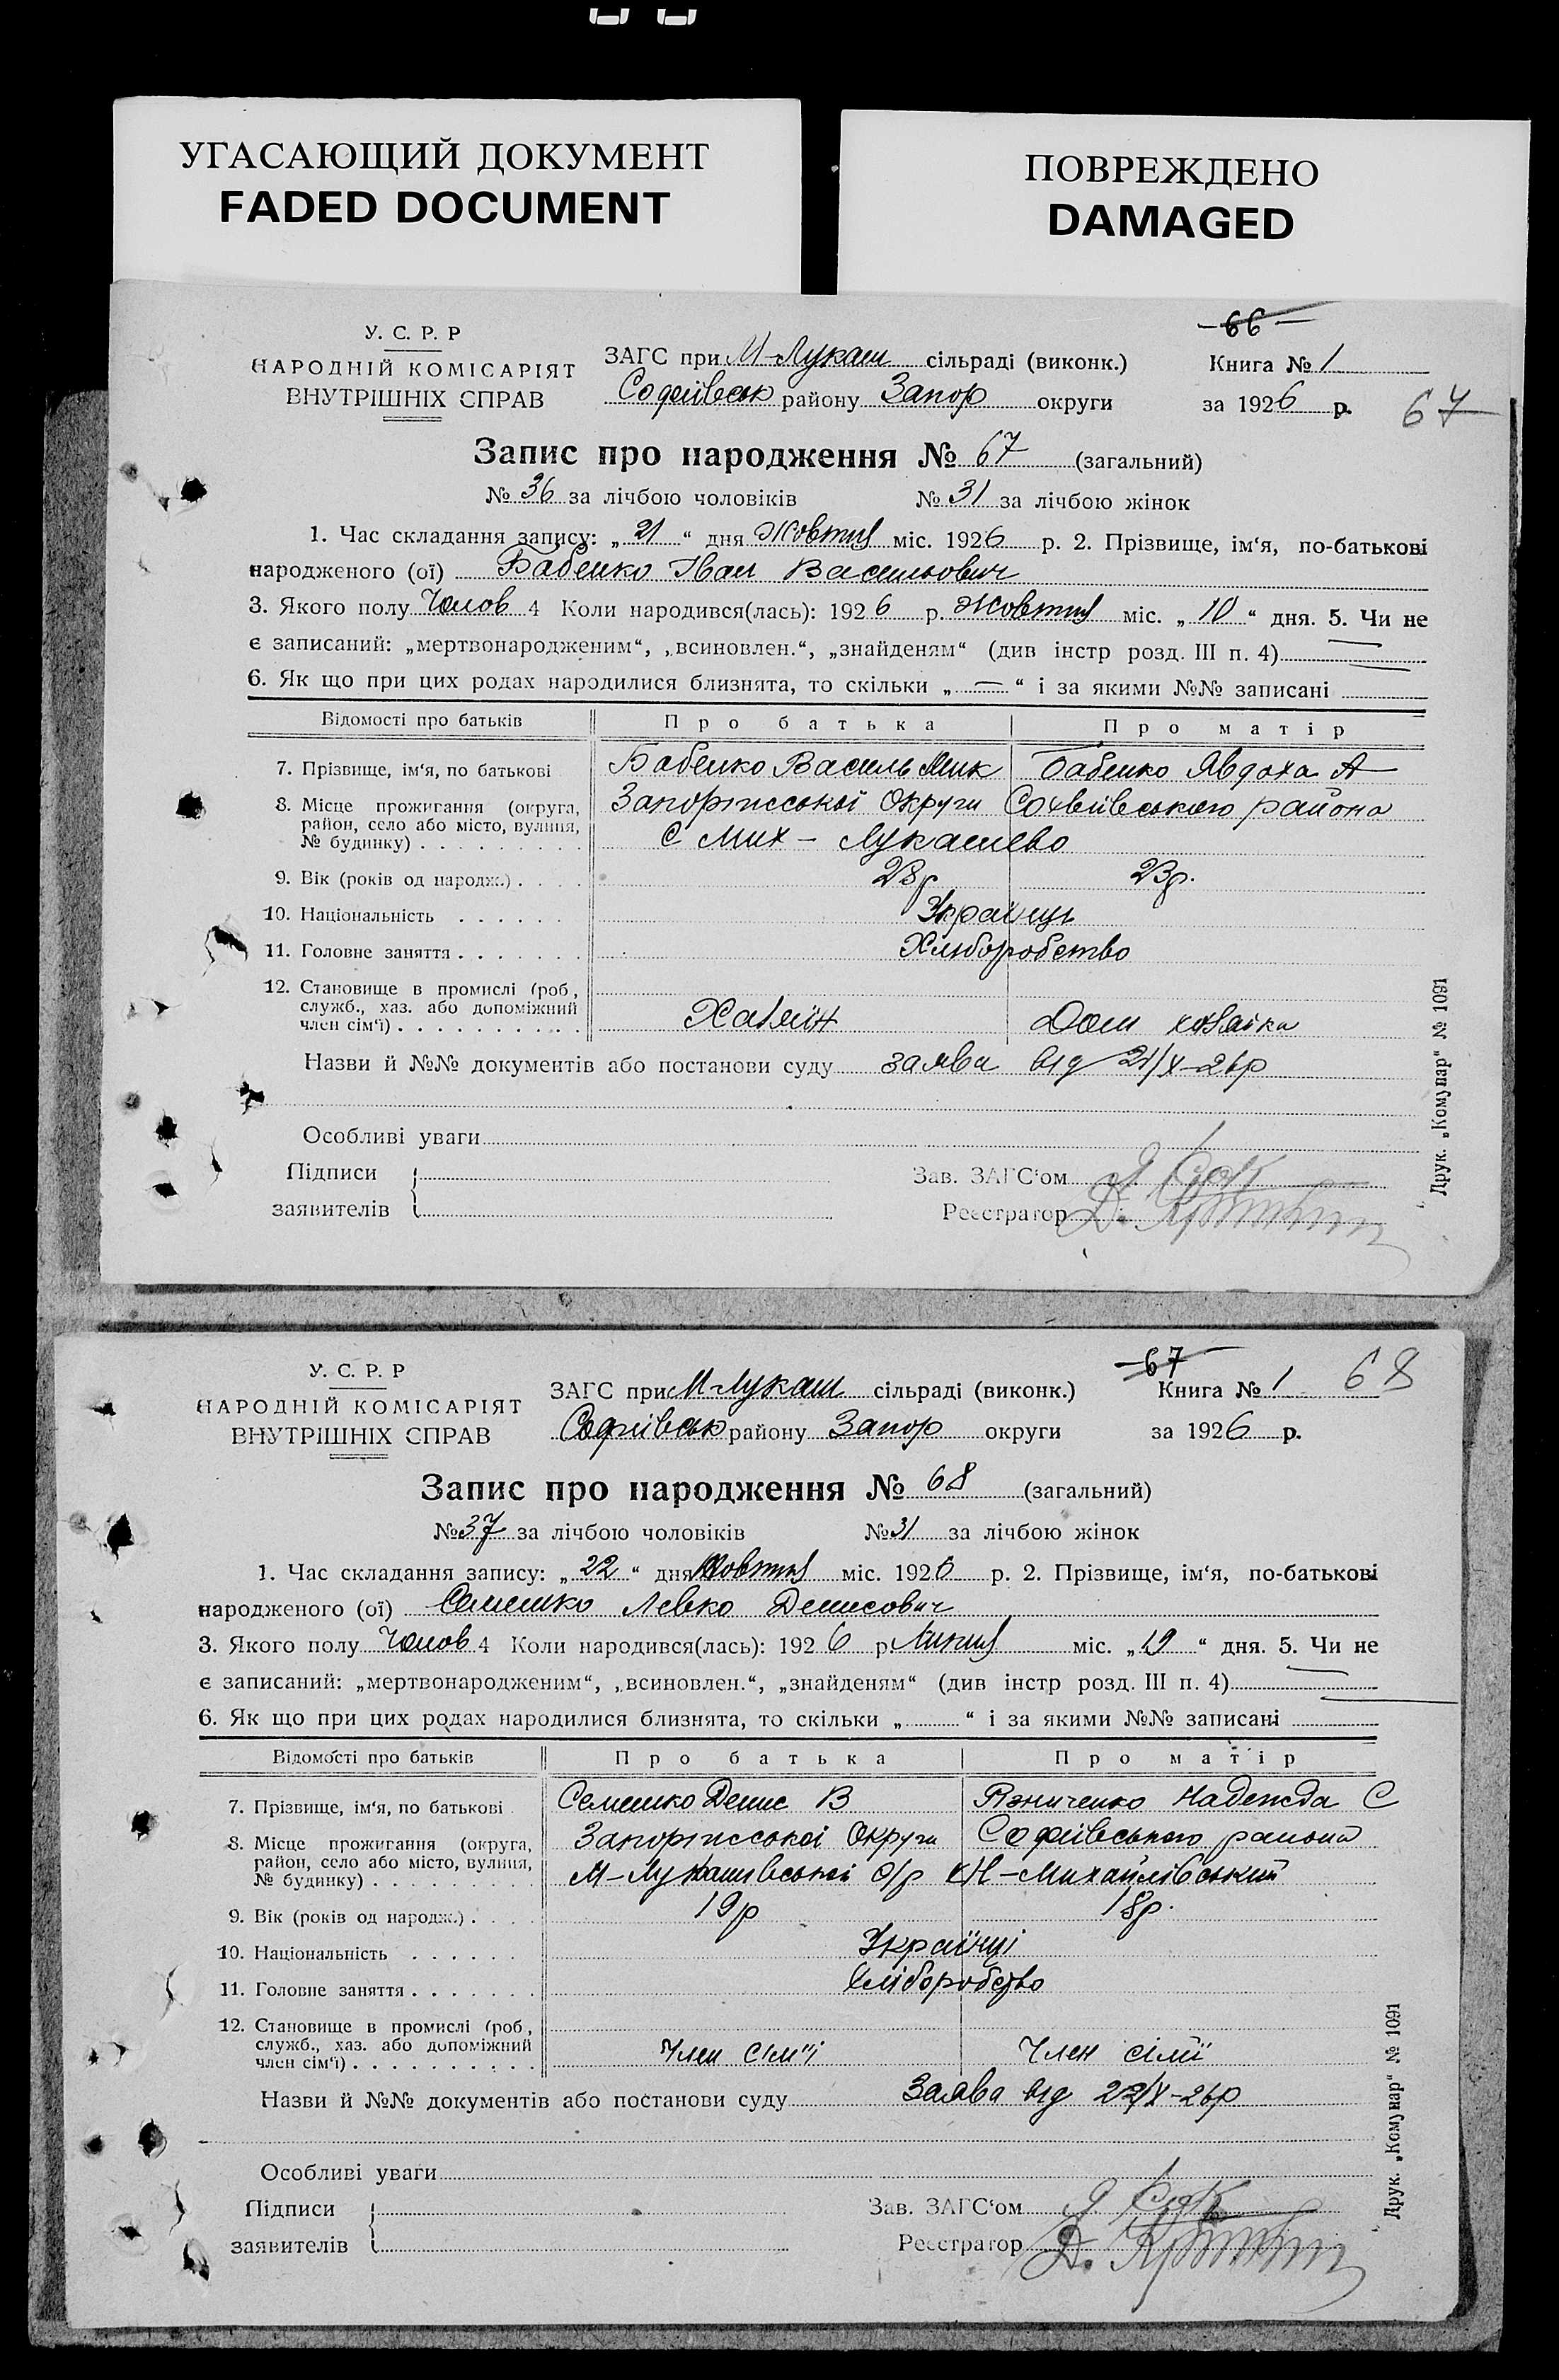 УГАСАЮЩИЙ ДОКУМЕНТ
FADED DOCUMENT
ПОВРЕЖДЕНО
DAMAGED
66
У. С. Р. Р
НАРОДНІЙ КОМІСАРІЯТ
ВНУТРІШНІХ СПРАВ
ЗАГС при М-Лукаш сільраді (виконк.)
Софіївськ району Запор округи
Книга № 1
за 1926 р.
67
Запис про народження № 67 (загальний)
№ 36 за лічбою чоловіків № 31 за лічбою жінок
1. Час складання запису: „21“ дня Жовтня міс. 1926 р. 2. Прізвище, ім‘я, по-батькові
народженого (ої) Бабенко Іван Васильович
3. Якого полу Чолов 4 Коли народився(лась): 1926 р. Жовтня міс. „10“ дня. 5. Чи не
є записаний: „мертвонародженим“, „всиновлен.“, „знайденям“ (див інстр розд. III п. 4) —
6. Як що при цих родах народилися близнята, то скільки „—“ і за якими №№ записані
Відомості про батьків Про батька Про матір
7. Прізвище, ім‘я, по батькові Бабенко Василь Мик Бабенко Явдоха А
8. Місце прожигання (округа, Запоріжської Округи Сохвіївського района
район, село або місто, вулиця, С Мих - Лукашево
№ будинку)
9. Вік (років од народж.) 28р 23р.
10. Національність Українці
11. Головне заняття Хліборобство
12. Становище в промислі (роб,
служб., хаз. або допоміжний
член сім‘ї) Хазяїн Дом хазяйка
Назви й №№ документів або постанови суду заява від 21/X-26р
Особливі уваги
Підписи
заявителів
Зав. ЗАГС‘ом
Реєстратор Д.
Друк. „Комунар“ № 1091
67
У. С. Р. Р
НАРОДНІЙ КОМІСАРІЯТ
ВНУТРІШНІХ СПРАВ
ЗАГС при М-Лукаш сільраді (виконк.)
Софіївськ району Запор округи
Книга № 1
за 1926 р.
68
Запис про народження № 68 (загальний)
№ 37 за лічбою чоловіків № 31 за лічбою жінок
1. Час складання запису: „22“ дня Жовтня міс. 1926 р. 2. Прізвище, ім‘я, по-батькові
народженого (ої) Семешко Левко Денисович
3. Якого полу Чолов 4 Коли народився(лась): 1926 р. Липня міс. „19“ дня. 5. Чи не
є записаний: „мертвонародженим“, „всиновлен.“, „знайденям“ (див інстр розд. III п. 4) —
6. Як що при цих родах народилися близнята, то скільки „ “ і за якими №№ записані
Відомості про батьків Про батька Про матір
7. Прізвище, ім‘я, по батькові Семешко Денис В Надежда С
8. Місце прожигання (округа, Запоріжської Округи Софіївського района
район, село або місто, вулиця, М-Лукашівської с/р Н-Михайлівський
№ будинку)
9. Вік (років од народж.) 19р 18р.
10. Національність Українці
11. Головне заняття Хліборобство
12. Становище в промислі (роб,
служб., хаз. або допоміжний
член сім‘ї) Член сім'ї Член сімї
Назви й №№ документів або постанови суду Заява від 22/X-26р
Особливі уваги
Підписи
заявителів
Зав. ЗАГС‘ом
Реєстратор Д.
Друк. „Комунар“ № 1091